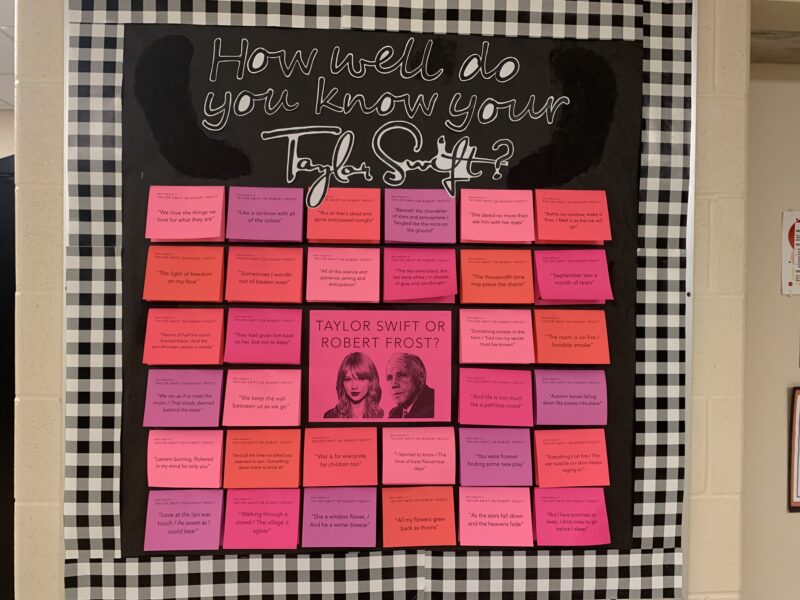 How well do
you know your
Taylor Swift?
WHO WROTE IT
TAYLOR SWIFT OR ROBERT FROST?
"We love the things we
love for what they are"
WHO WROTE IT
TAYLOR SWIFT OR ROBERT FROST?
"Like a rainbow with all
of the colors"
WHO WROTE IT
TAYLOR SWIFT OR ROBERT FROST?
"But all that's dead and
gone and passed tonight"
WHO WROTE IT
TAYLOR SWIFT OR ROBERT FROST?
"Beneath the chandelier
of stars and atmosphere /
Tangled like the roots on
the ground"
WHO WROTE IT
TAYLOR SWIFT OR ROBERT FROST?
"She dared no more than
ask him with her eyes"
WHO WROTE IT
TAYLOR SWIFT OR ROBERT FROST?
"Bathe my window, make it
flow, / Melt it as the ice will
go"
"The light of freedom
on my face"
"Sometimes I wander
out of beaten ways"
"All of this silence and
patience, pining and
anticipation"
"The tea were black, the
ties were white / In shades
of gray and candlelight"
"The thousandth time
may prove the charm"
"September saw a
month of tears"
"Visions of half the world
burned black / And the
sun shrunken yellow in smoke"
"They had given him back
to her, but not to keep"
TAYLOR SWIFT OR
ROBERT FROST?
"Something sweeter in the
tone / Told me my secret
must be known"
"The room is on fire /
Invisible smoke"
"We ran as if to meet the
moon / That slowly dawned
behind the trees"
"We keep the wall
between us as we go"
"And life is too much
like a pathless wood"
"Autumn leaves falling
down like pieces into place"
"Lantern burning, flickered
in my mind for only you"
"And all the time we talked you
seemed to see / Something
down there to smile at"
"War is for everyone,
for children too"
"I learned to know / The
love of bare November
days"
"You were forever
finding some new play"
"Everything's on fire / The
war outside our door keeps
raging on"
"Love at the lips was
touch / As sweet as I
could bear"
"Walking through a
crowd / The village is
aglow"
"She a window flower, /
And he a winter breeze"
"All my flowers grew
back as thorns"
"As the stars fall down
and the heavens fade"
"But I have promises to
keep, / And miles to go
before I sleep"